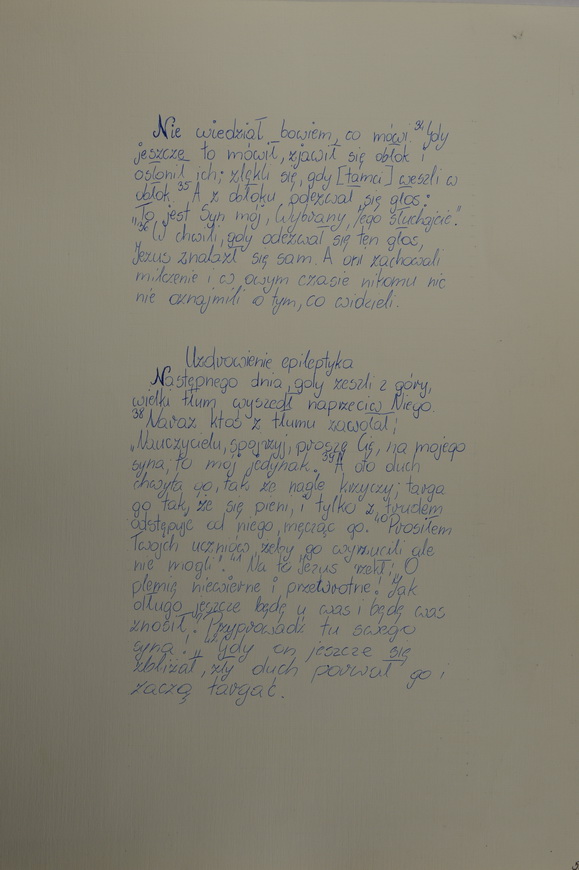 Nie wiedział bowiem, co mówi. ³⁴Gdy
jeszcze to mówił, zjawił się obłok i
osłonił ich; zlękli się, gdy [tamci] weszli w
obłok. ³⁵A z obłoku odezwał się głos:
"To jest Syn mój, Wybrany, Jego słuchajcie".
³⁶W chwili, gdy odezwał się ten głos,
Jezus znalazł się sam. A oni zachowali
milczenie i w owym czasie nikomu nic
nie oznajmili o tym, co widzieli.
Uzdrowienie epileptyka
Następnego dnia, gdy zeszli z góry,
wielki tłum wyszedł naprzeciw Niego.
³⁸Naraz ktoś z tłumu zawołał:
"Nauczycielu, spojrzyj, proszę Cię, na mojego
syna; to mój jedynak. ³⁹A oto duch
chwyta go, tak że nagle krzyczy; targa
go tak, że się pieni, i tylko z trudem
odstępuje od niego, męcząc go. ⁴⁰Prosiłem
Twoich uczniów, żeby go wyrzucili, ale
nie mogli". ⁴¹Na to Jezus rzekł: "O
plemię niewierne i przewrotne! Jak
długo jeszcze będę u was i będę was
znosił? Przyprowadź tu swego
syna". ⁴²Gdy on jeszcze się
zbliżał, zły duch porwał go i
zaczą targać.